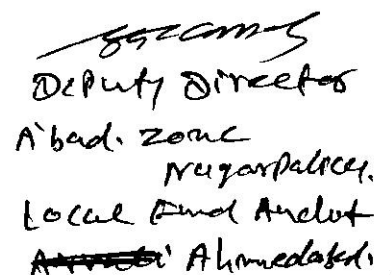 Deputy Director
A'bad. Zone
Nagarpalica.
Local Fund Audit
Ahmedabad.